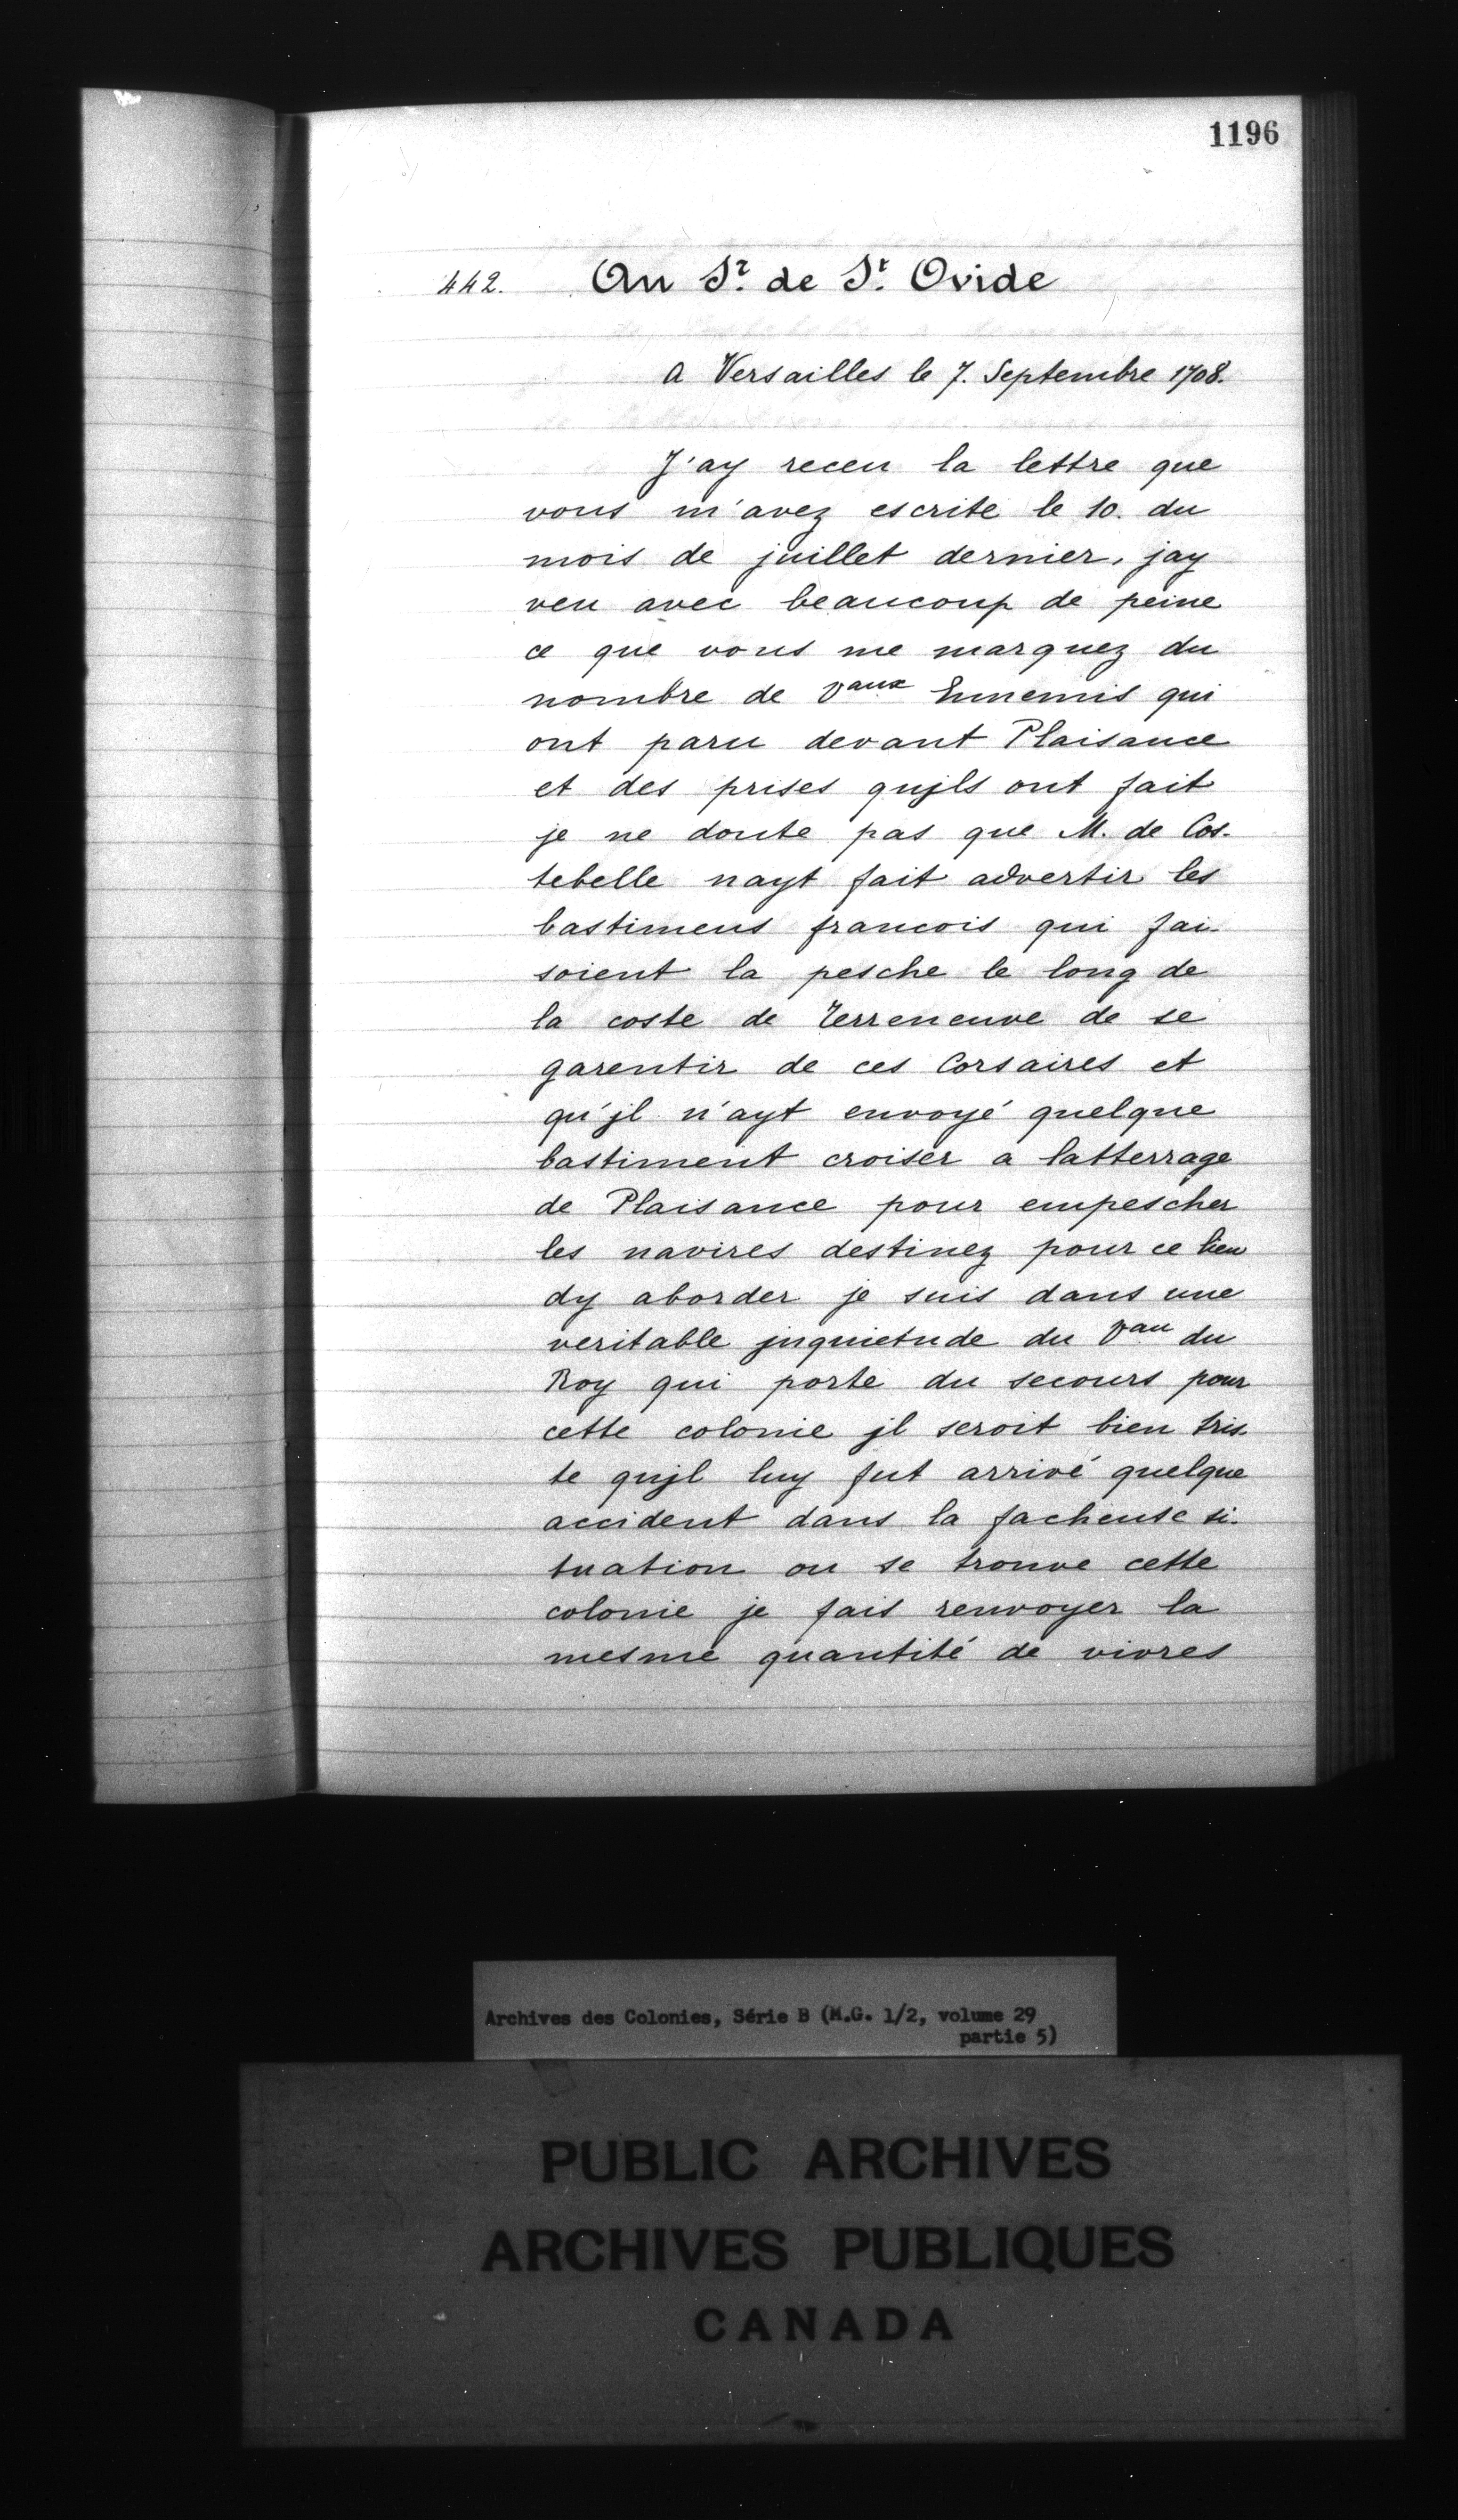 1196
442. Au Sr. de St. Ovide
A Versailles le 7. Septembre 1708.
J'ay receu la lettre que
vous m'avez escrite le 10. du
mois de juillet dernier, jay
veu avec beaucoup de peine
ce que vous me marquez du
nombre de Vaux Ennemis qui
ont paru devant Plaisance
et des prises qujls ont fait
je ne doute pas que M. de Cos-
tebelle nayt fait advertir les
bastimens francois qui fai-
soient la pesche le long de
la coste de Terreneuve de se
garentir de ces Corsaires et
qu'jl n'ayt envoyé quelque
bastiment croiser a latterrage
de Plaisance pour empescher
les navires destinez pour ce lieu
dy aborder je suis dans une
veritable jnquietude du Vau du
Roy qui porte du secours pour
cette colonie jl seroit bien tris-
te qujl luy fut arrivé quelque
accident dans la facheuse si-
tuation ou se trouve cette
colonie je fais renvoyer la
mesme quantité de vivres
Archives des Colonies, Série B (M.G. 1/2, volume 29
partie 5)
PUBLIC ARCHIVES
ARCHIVES PUBLIQUES
CANADA